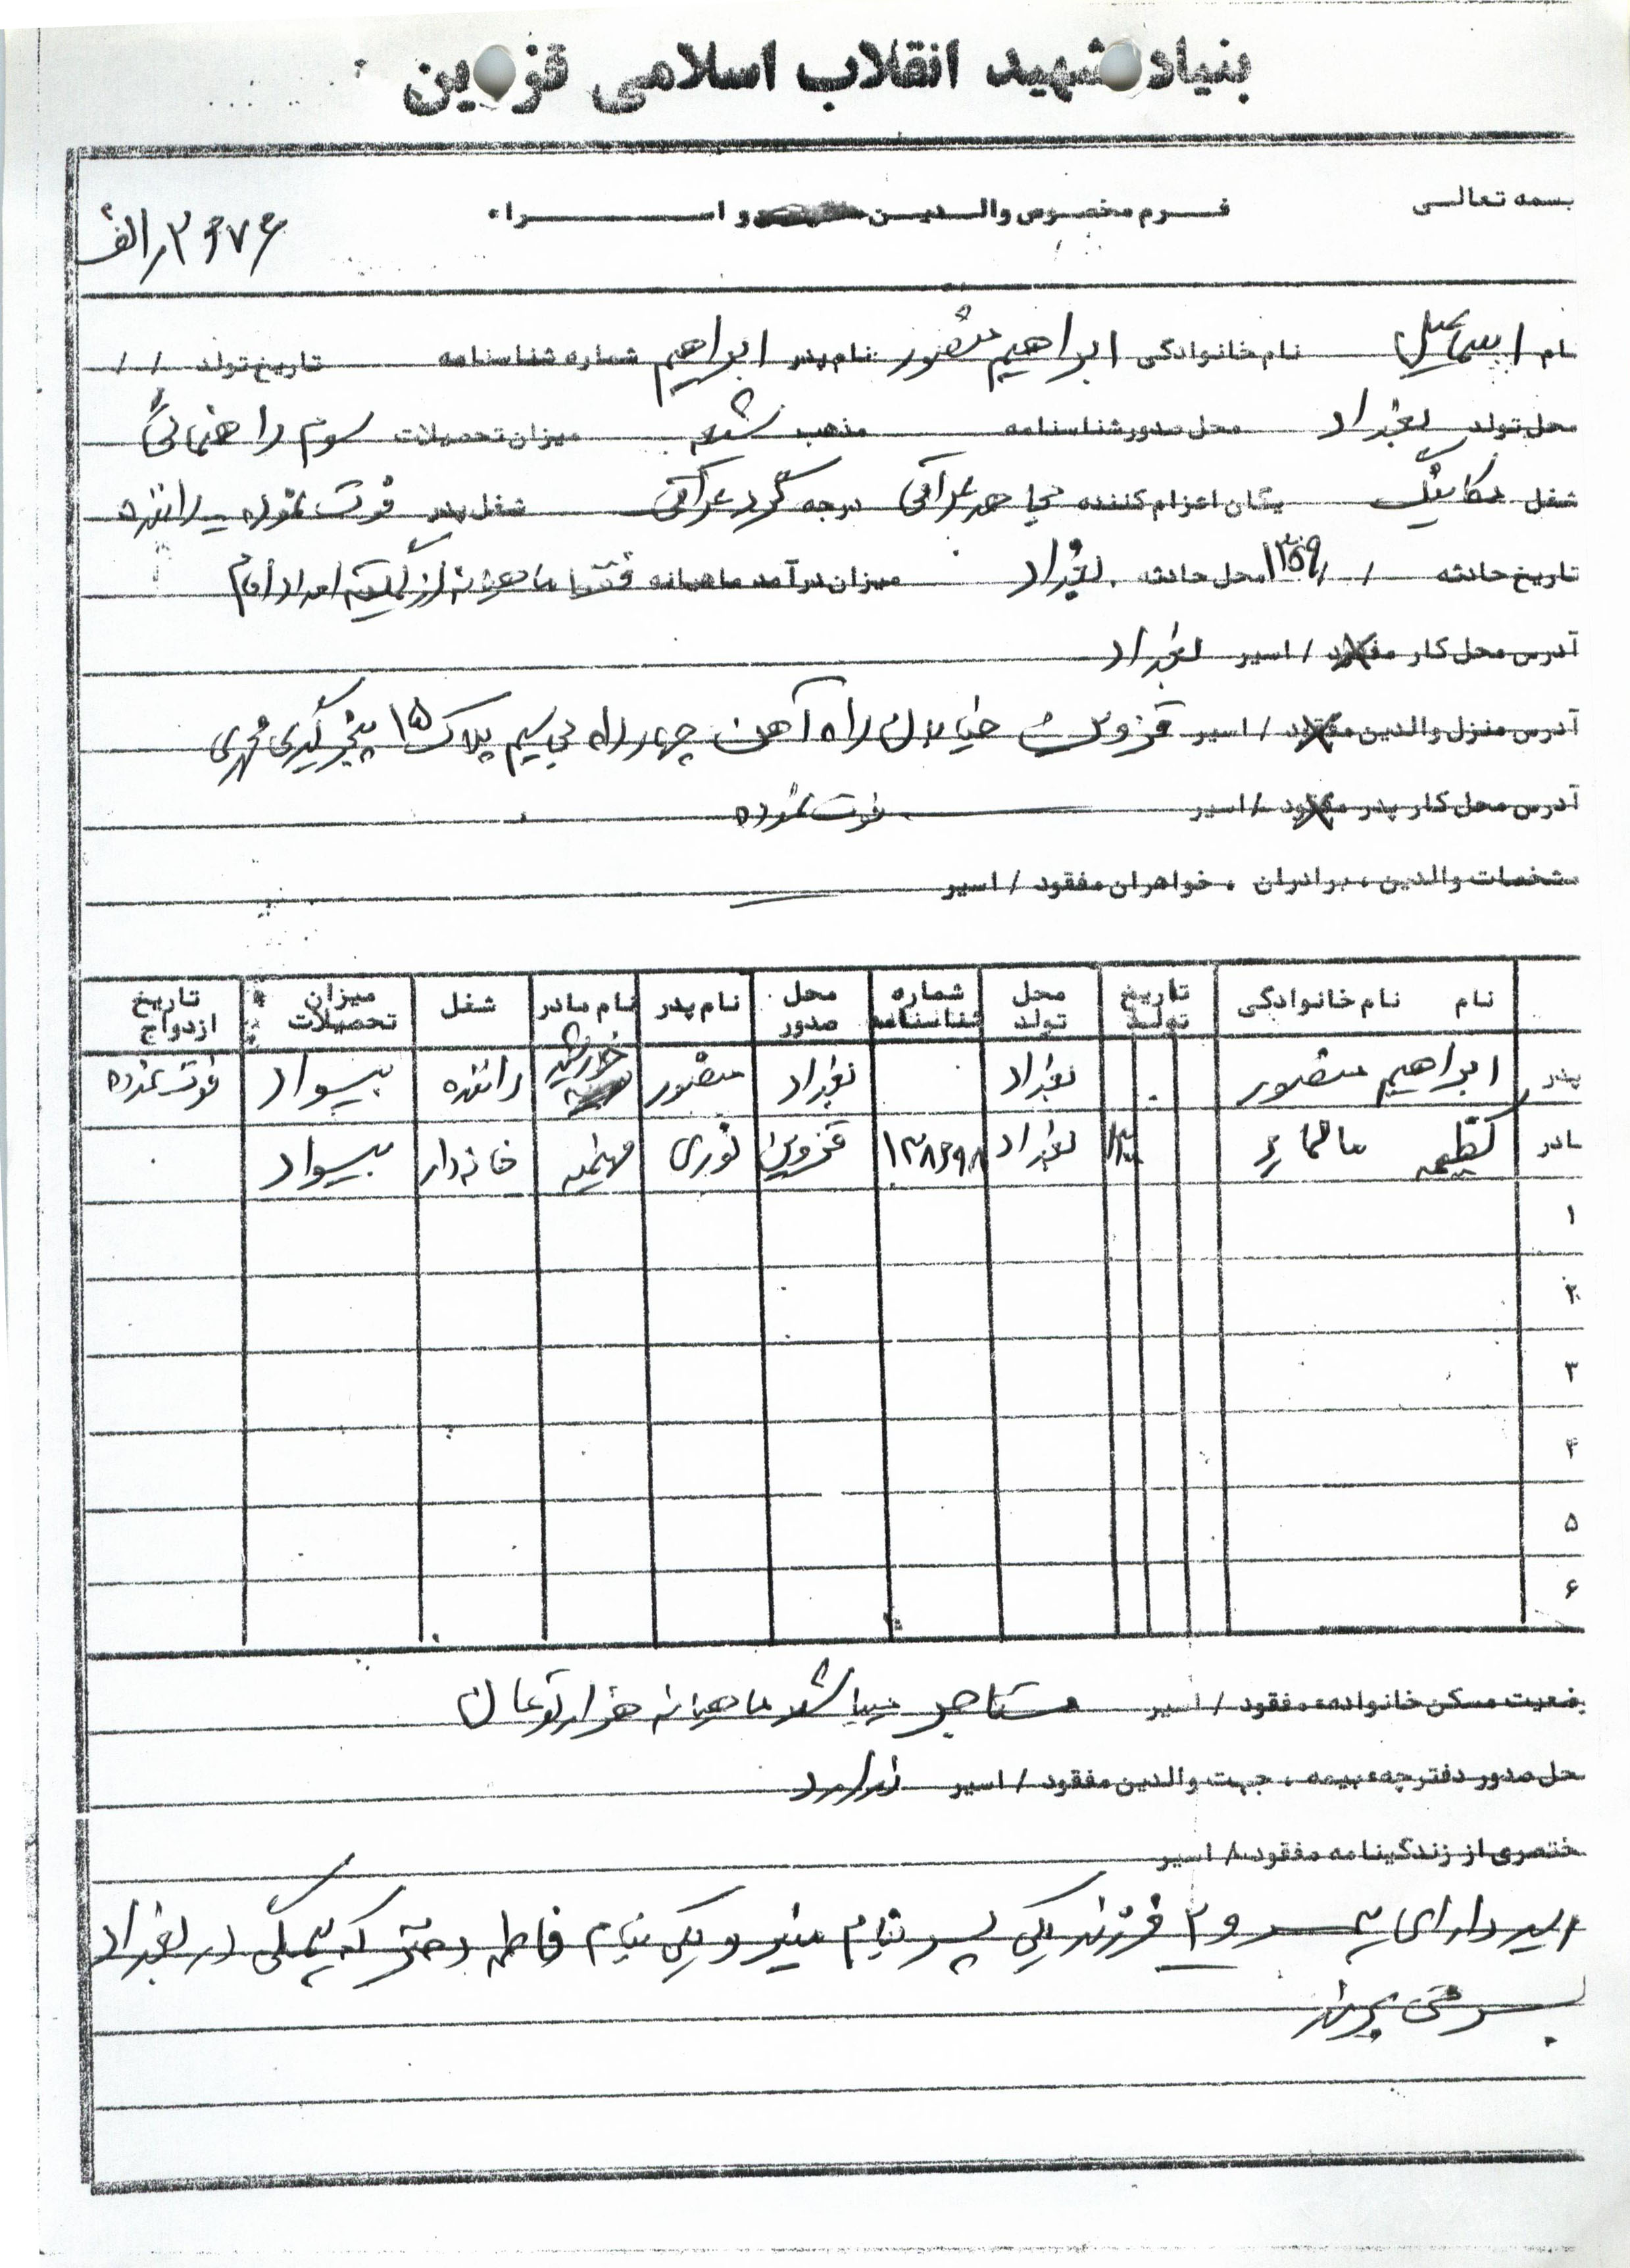 بنیاد شهید انقلاب اسلامی قزوین
بسمه تعالی
فرم مخصوص والدین و اسراء
۲۶۷۶/الف
نام اسماعیل نام خانوادگی ابراهیم منصور نام پدر ابراهیم شماره شناسنامه تاریخ تولد / /
محل تولد بغداد محل صدور شناسنامه مذهب شیعه میزان تحصیلات سوم راهنمائی
شغل مکانیک یگان اعزام کننده مجاهد عراقی درجه کرد عراقی شغل پدر فوت نموده - راننده
تاریخ حادثه / / ۱۳۵۹ محل حادثه بغداد میزان درآمد ماهیانه فقط ماهیانه از کمیته امداد امام
آدرس محل کار مفقود / اسیر بغداد
آدرس منزل والدین مفقود / اسیر قزوین خیابان راه آهن چهارراه بی سیم پلاک ۱۵ پنچرگیری مهری
آدرس محل کار پدر مفقود / اسیر فوت نموده
مشخصات والدین ، برادران ، خواهران مفقود / اسیر
نام نام خانوادگی تاریخ تولد محل تولد شماره شناسنامه محل صدور نام پدر نام مادر شغل میزان تحصیلات تاریخ ازدواج
پدر ابراهیم منصور بغداد بغداد منصور خورشید راننده بیسواد فوت نموده
مادر کظیمه بغداد قزوین نوری خانه دار بیسواد
۱
۲
۳
۴
۵
۶
وضعیت مسکن خانواده مفقود / اسیر مستاجر میباشد ماهیانه هزار تومان
محل صدور دفترچه بیمه ، جهت والدین مفقود / اسیر ندارد
مختصری از زندگینامه مفقود / اسیر
اسیر دارای و ۲ فرزند یکی پسر بنام منیر و یکی بنام فاطمه دختر که همگی در بغداد
بسر می برند